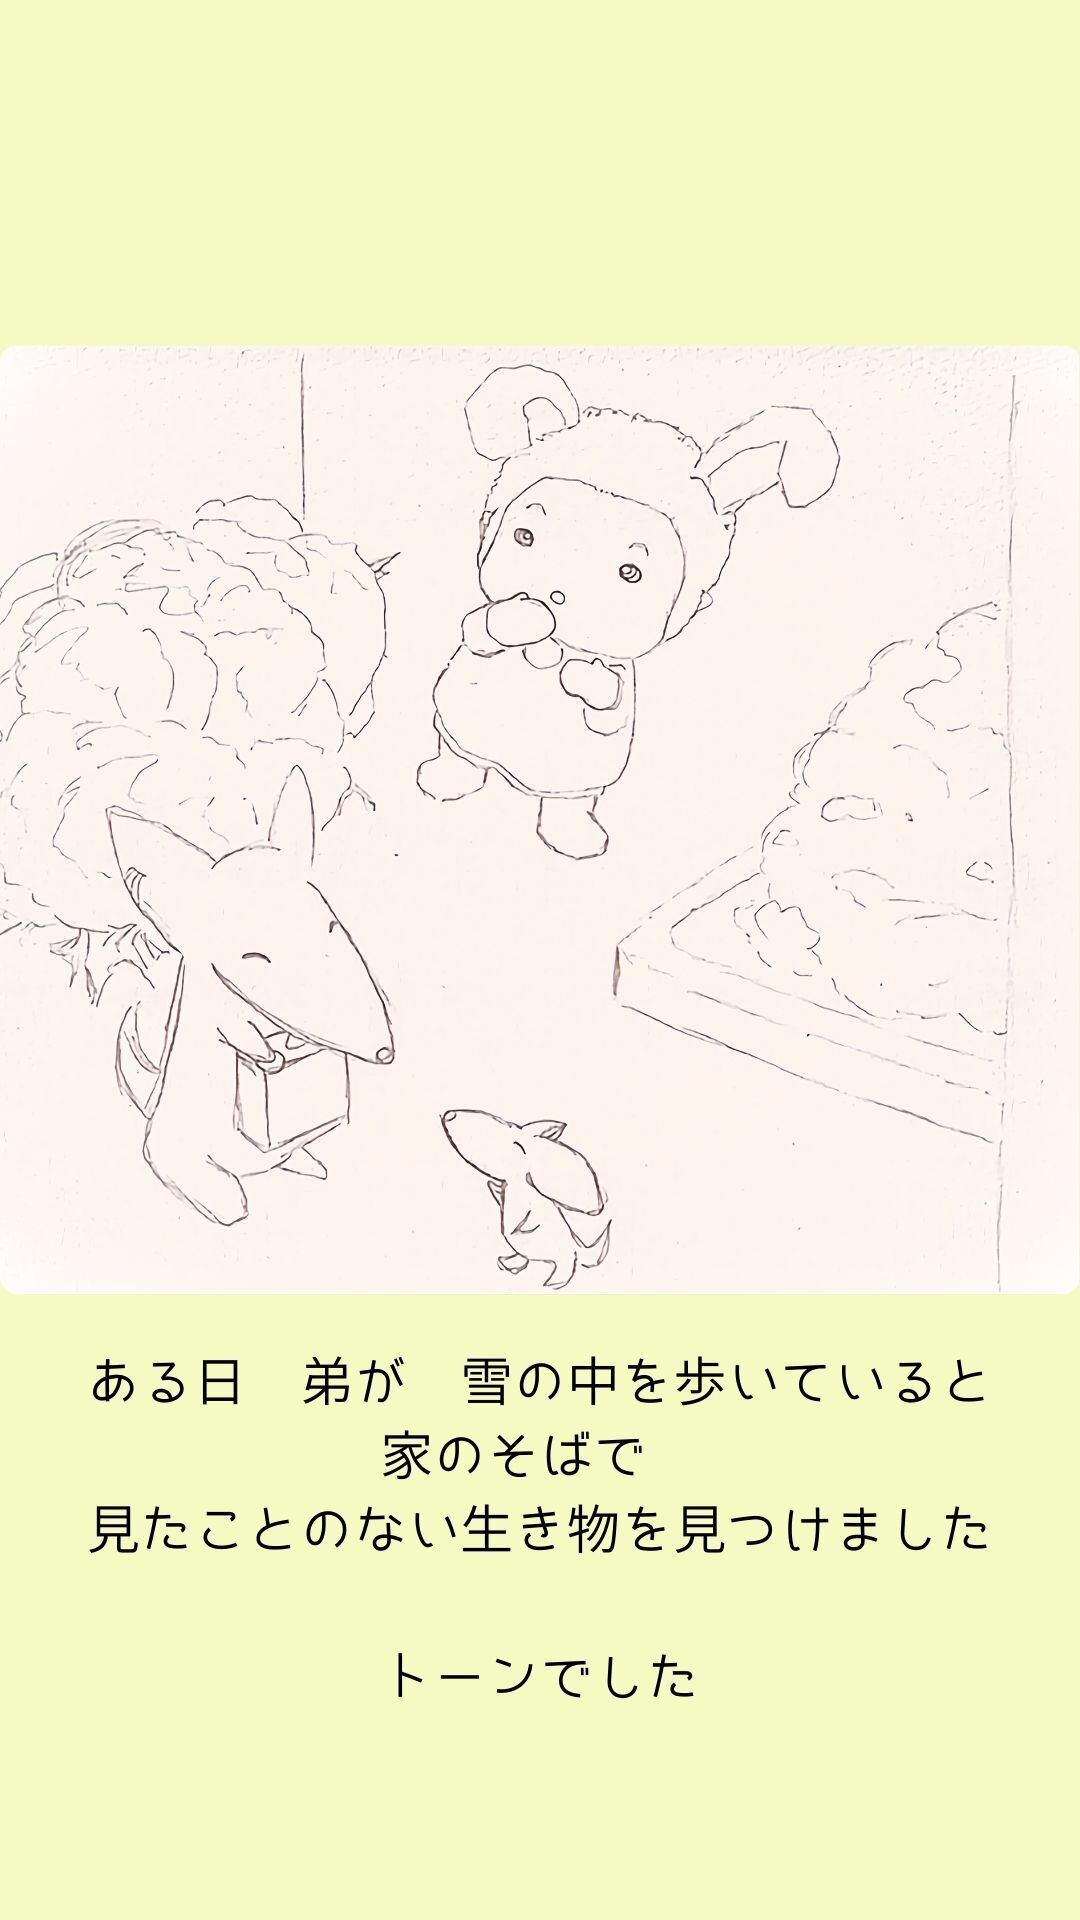 ある日　弟が　雪の中を歩いていると
家のそばで
見たことのない生き物を見つけました
トーンでした